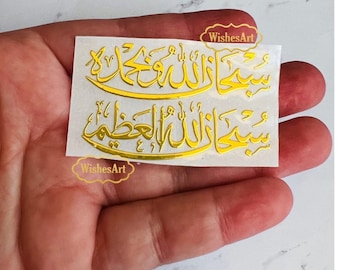 WishesArt
سبحان الله وبحمده
سبحان الله العظيم
WishesArt